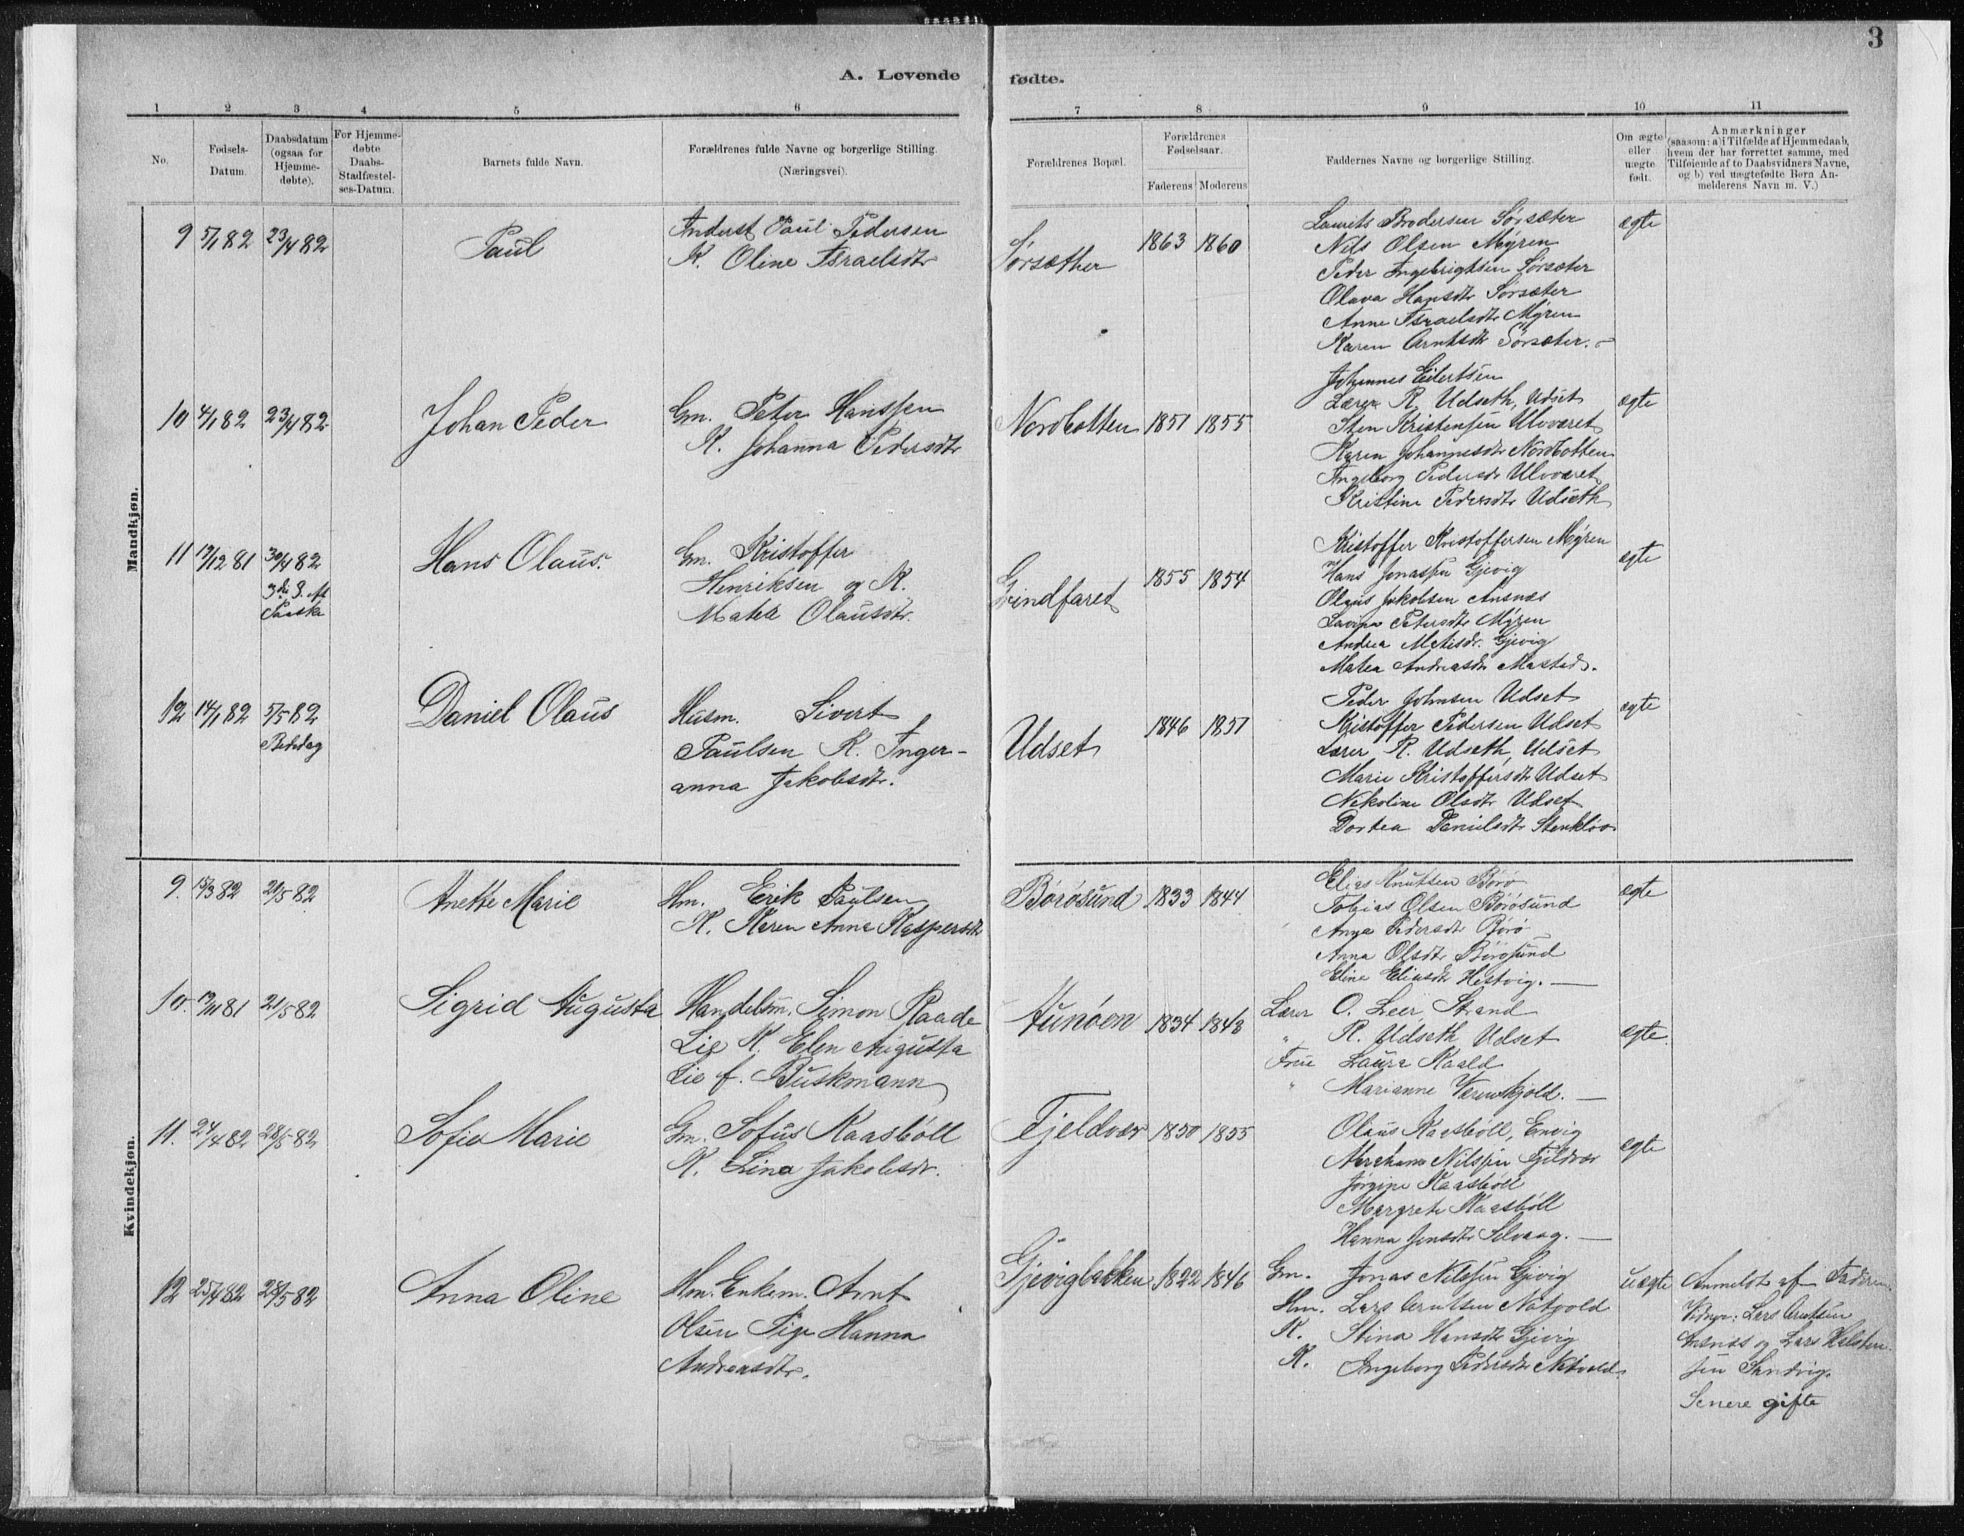 3
A. Levende fødte.
1 2 3 4 5 6 7 8 9 10 11
No.
Fødsels-Datum.
Daabsdatum (ogsaa for Hjemme-døbte).
For Hjemme-døbte Daabs-Stadfæstel-ses-Datum.
Barnets fulde Navn.
Forældrenes fulde Navne og borgerlige Stilling.
(Næringsvei).
Forældrenes Bopæl.
Forældrenes Fødselsaar.
Faderens Moderens
Faddernes Navne og borgerlige Stilling.
Om ægte eller uægte født.
Anmærkninger
(saasom: a) i Tilfælde af Hjemmedaab,
hvem der har forrettet samme, med
Tilføiende af to Daabsvidners Navne,
og b) ved uægtefødte Børn An-
melderens Navn m. V.)
Mandkjøn.
9 5/1 82 23/4 82
Paul
Anderst Paul Pedersen
K. Oline Israelsdtr
Sørsæther
1863 1860
Laurits Brodersen Sørsæter
Nils Olsen Myren
Peder Ingebrigtsen Sørsæter
Olava Hansdtr Sørsæter
Anne Israelsdtr Myren
Karen Arntsdtr Sørsæter.
ægte
10 4/1 82 23/4 82
Johan Peder
Gm. Peter Hanssen
K. Johanna Pedersdtr
Nordbotten
1851 1855
Johannes Eilertsen
Lærer R. Udseth, Udset
Sten Kristensen Ulvværet
Karen Johannesdtr Nordbotten
Ingeborg Pedersdr Ulvværet
Kristine Pedersdtr Udseth
ægte
11 19/12 81 30/4 82
3die S. eft
Paaske
Hans Olaus.
Gm. Kristoffer
Henriksen og K.
Matea Olausdtr.
Grindfaret
1855 1854
Kristoffer Kristoffersen Myren
Hans Jonassen Gjevig
Olaus Jakobsen Ansnæs
Lavina Petersdtr Myren
Andrea Matisdr. Gjevig
Matea Andreasdtr Mastad.
ægte
12 14/1 82 5/5 82
Bededag
Daniel Olaus
Husm. Sivert
Paulsen K. Inger-
anna Jakobsdtr.
Udset
1846 1851
Peder Johnsen Udset
Kristoffer Pedersen Udset
Lærer R. Udseth, Udset
Marie Kristoffersdtr Udset
Nikoline Olsdtr Udset
Dortea Danielsdtr Stenkløv
ægte
Kvindekjøn.
9. 15/3 82 21/5 82
Anette Marie
Hm. Erik Paulsen
K. Karen Anna Kaspersdtr
Børøsund
1833 1844
Elias Knutsen Børø
Tobias Olsen Børøsund
Anna Pedersdtr Børø
Anna Olsdtr Børøsund
Eline Eliasdtr Hestvig.
ægte
10. 19/11 81 21/5 82
Sigrid Augusta
Handelsm. Simon Raade
Lie K. Elen Augusta
Lie f. Buskmann
Aunøen
1834 1843
Lærer O. Leer, Strand
" R. Udseth Udset
Frue Laura Kaald
" Marianne Værnskjold.
ægte.
11. 24/4 82 28/5 82
Sofie Marie
Gm. Sofus Kaasbøll
K. Lina Jakobsdr.
Fjeldvær
1850 1855
Olaus Kaasbøll, Ervig
Abraham Nilssen Fjeldvær
Jørgine Kaasbøll
Margrete Kaasbøll
Hanna Jensdtr Selvaag.
ægte
12 25/4 82 28/5 82
Anna Oline
Hm. Enkem. Arnt
Olsen Pige Hanna
Andreasdtr.
Gjevigbakken
1822 1846
Gm. Jonas Nilssen Gjevig
Hm. Lars Arntsen Natvold
K. Stina Hansdtr Gjevig
K. Ingeborg Pedersdtr Natvold.
uægte
Anmeldt af Faderen
Vidner: Lars Arntsen
Ansnæs og Lars Halsten-
sen Sandvig.
Senere gifte